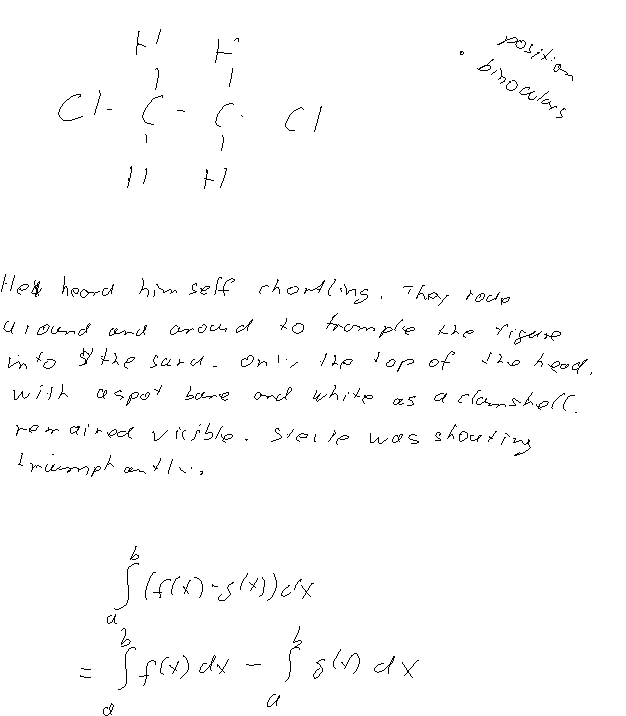 H H
Cl - C - C - Cl
H H
position
binoculars
He heard himself chortling. They rode
around and around to trample the figure
into the sand. Only the top of the head,
with a spot bare and white as a clamshell.
remained visible. Stevie was shouting
triumphantly.
∫_a^b (f(x) - g(x)) dx
= ∫_a^b f(x) dx - ∫_a^b g(x) dx